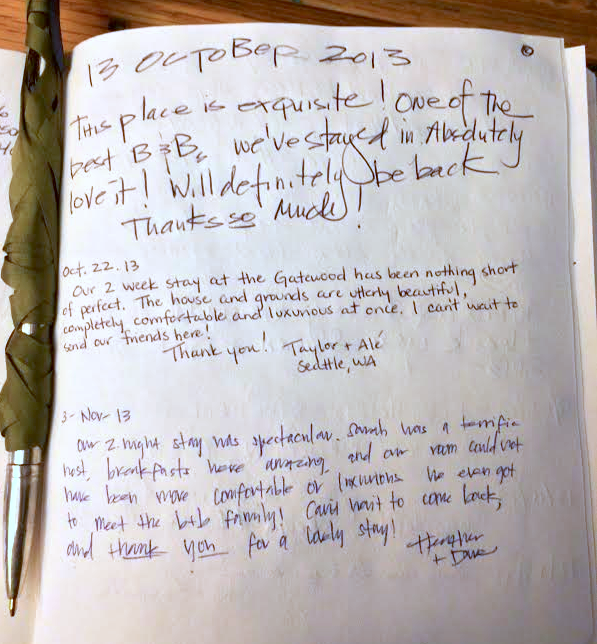 13 OCTOBER 2013
This place is exquisite! One of the
best B & Bs we've stayed in. Absolutely
love it! Will definitely be back
Thanks so much!
Oct. 22. 13
Our 2 week stay at the Gatewood has been nothing short
of perfect. The house and grounds are utterly beautiful,
completely comfortable and luxurious at once. I can't wait to
send our friends here!
Thank you! Taylor + Alé
Seattle, WA
3-Nov-13
Our 2-night stay was spectacular. Sarah was a terrific
host, breakfasts were amazing and our room could not
have been more comfortable or luxurious. We even got
to meet the b+b family! Can't wait to come back,
and thank you for a lovely stay!
Heather
+ Dave